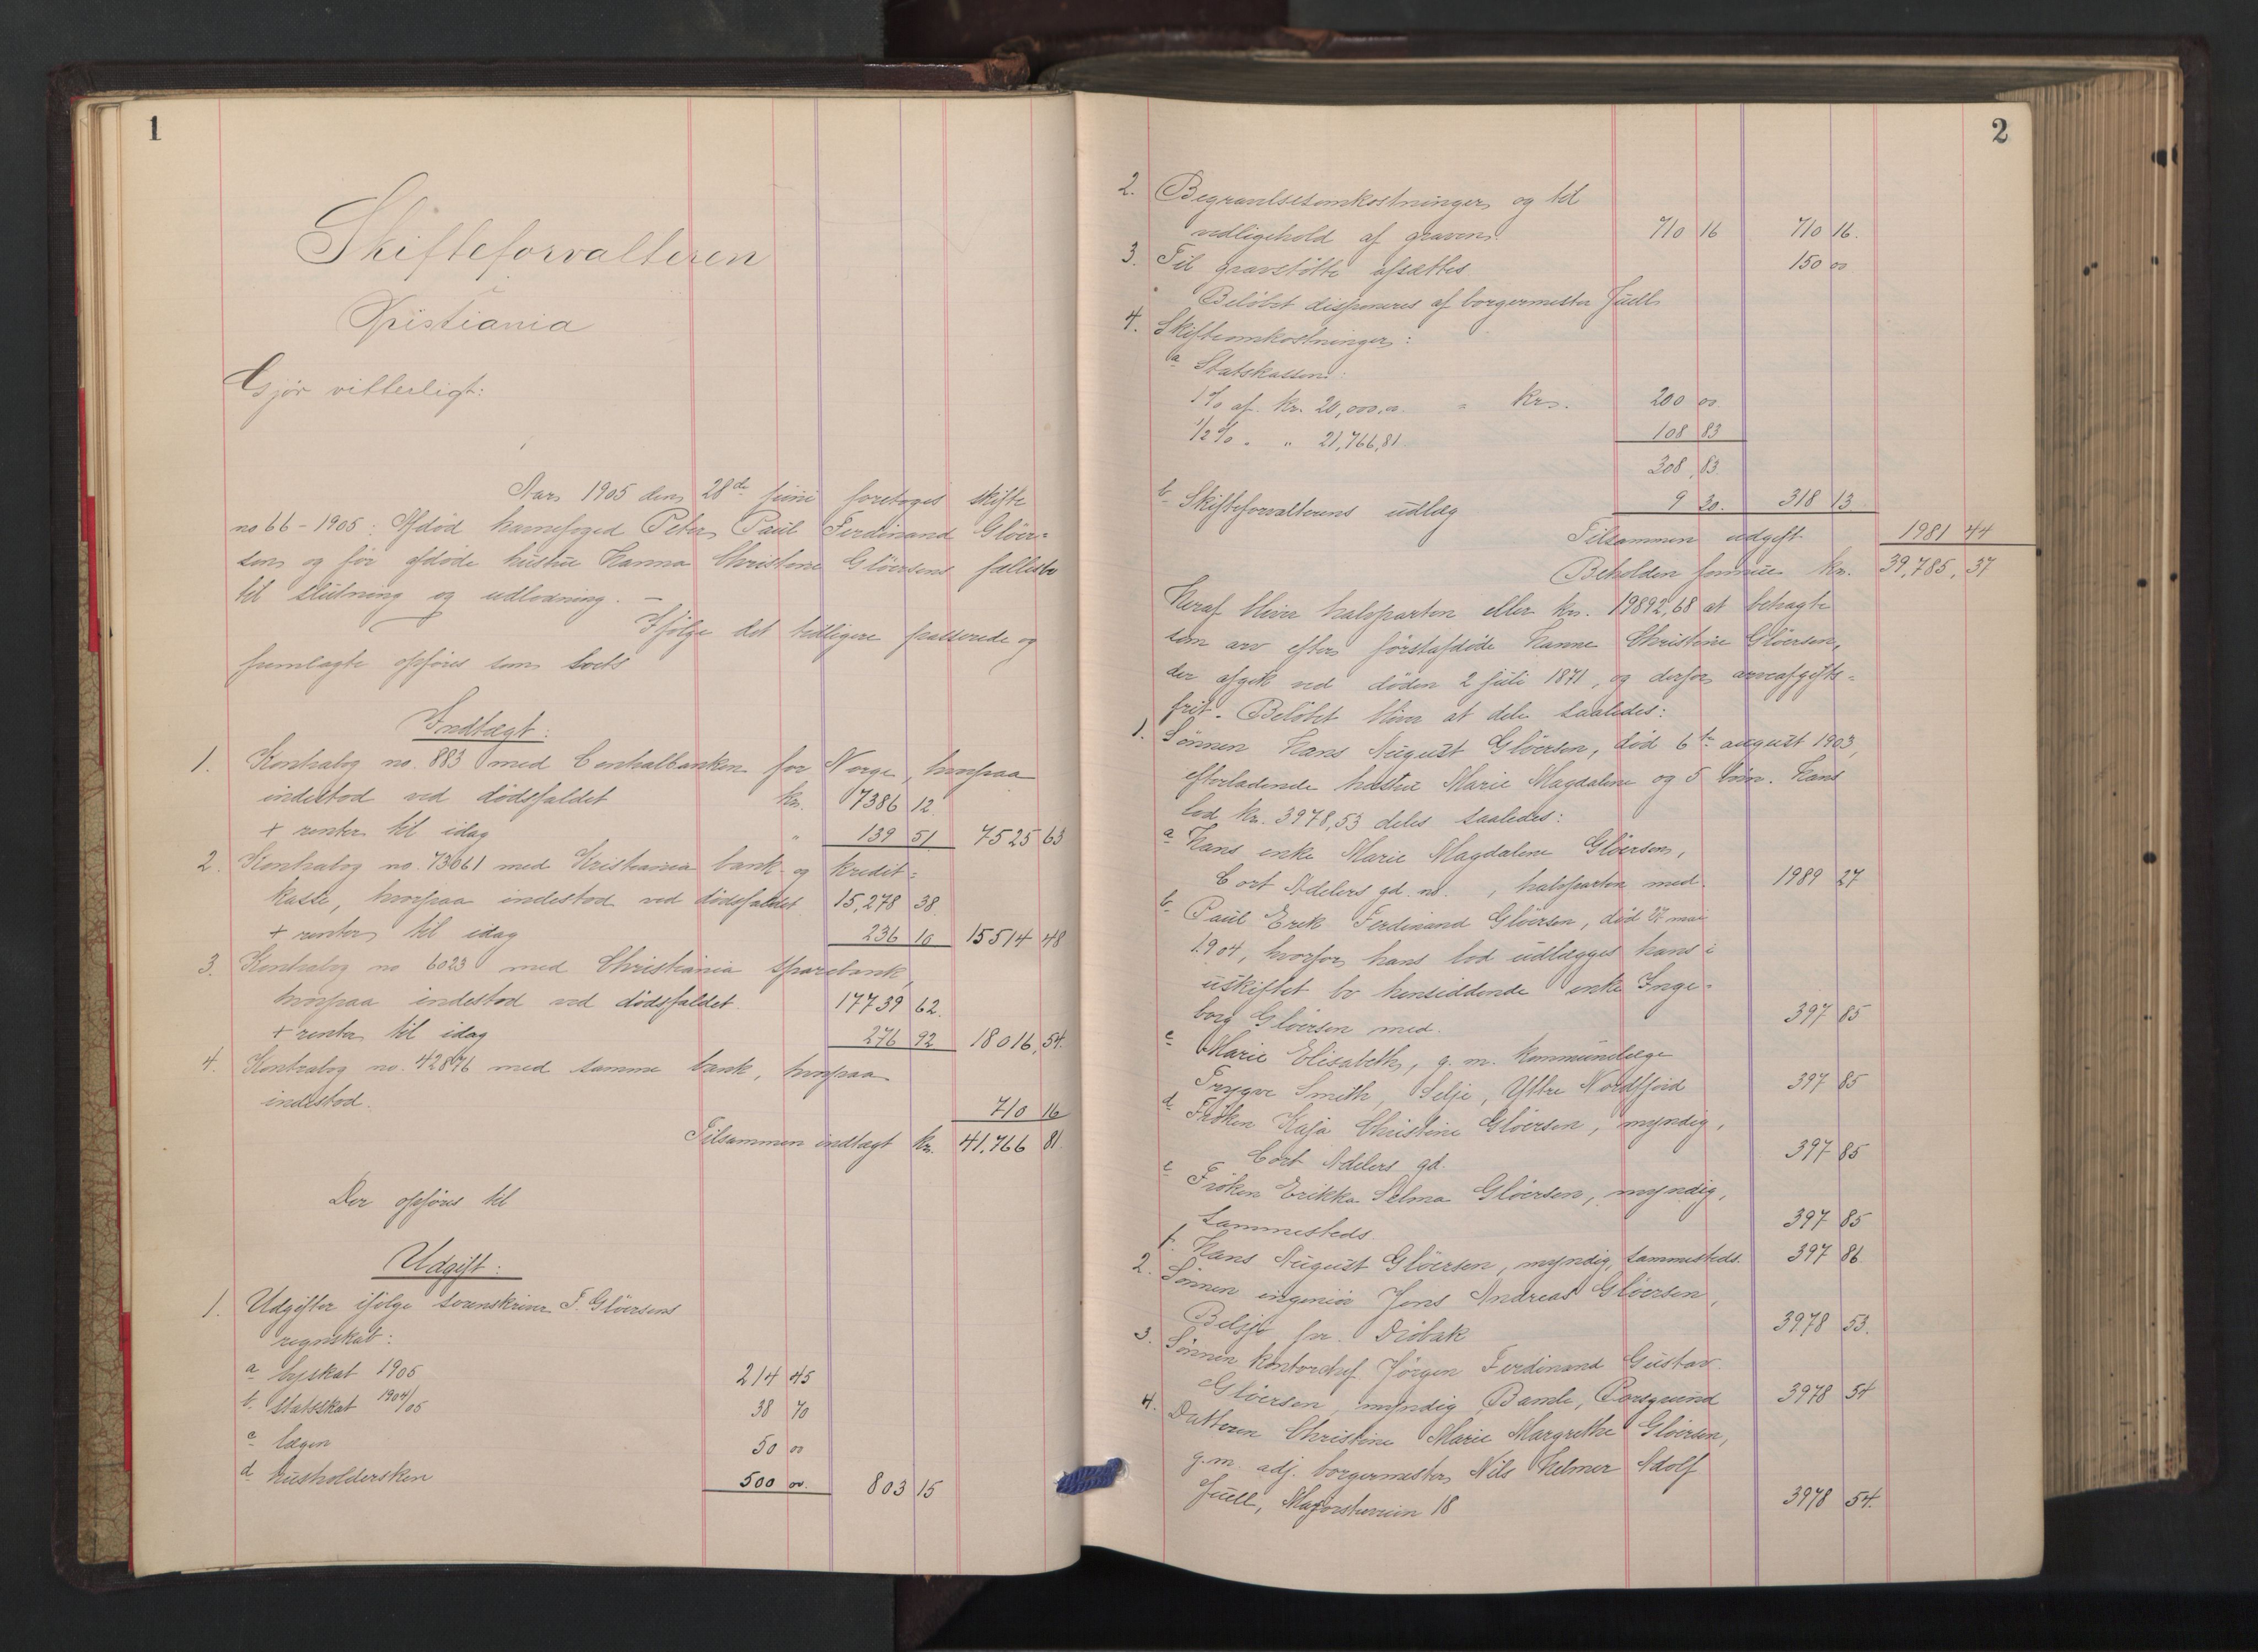 1
Skifteforvalteren
Kristiania
Gjør vitterligt:
Aar 1905 den 28de juni foretoges skifte
no 66 - 1905: Afdød havnefoged Peter Paul Ferdinand Gløer=
sen og før afdøde hustru Hanna Christine Gløersens fællesbo
til slutning og udlodning. —
Ifølge det tidligere passerede og
fremlagte opføres som boets
Indtægt:
1. Kontrabog no. 883 med Centralbanken for Norge, hvorpaa
indestod ved dødsfaldet kr. 7386 12.
+ renter til idag " 139 51 7525 63
2. Kontrabog no. 73661 med Kristiania bank- og kredit=
kasse, hvorpaa indestod ved dødsfaldet 15,278 38
+ renter til idag 236 10 15514 48
3. Kontrabog no 6023 med Christiania sparebank,
hvorpaa indestod ved dødsfaldet 17739 62.
+ renter til idag 276 92 18016,54.
4. Kontrabog no. 42876 med samme bank, hvorpaa
indestod. 710 16
Tilsammen indtægt kr. 41.766 81
Der opføres til
Udgift:
1. Udgifter ifølge sorenskriver F. Gløersens
regnskab:
a byskat 1905 214 45
b. statsskat 1904/05 38 70
c lægen 50 00
d husholdersken 500 00. 803 15
2
2. Begravelsesomkostninger og til
vedligehold af graven. 710 16 710 16.
3. Til gravstøtte afsættes 150 00
Beløbet disponeres af borgermester Juell
4. Skifteomkostninger:
a Statskassen:
1% af kr. 20,000,00 = kr. 200 00
1/2% " " 21,766,81. 108 83
308,83
b. Skifteforvalterens udlæg 9 30. 318 13
Tilsammen udgift 1981 44
Beholden formue kr. 39,785,37
Heraf bliver halvparten eller kr. 19892,68 at betragte
som arv efter førstafdøde Hanne Christine Gløersen,
der afgik ved døden 2 juli 1871, og derfor arveafgifts=
frit. Beløbet bliver at dele saaledes:
1. Sønnen Hans August Gløersen, død 6te august 1903,
efterladende hustru Marie Magdalene og 5 børn. Hans
lod kr. 3978,53 deles saaledes:
a Hans enke Marie Magdalene Gløersen,
Cort Adelers gd. no. , halvparten med 1989 27
b. Paul Erek Ferdinand Gløersen, død 27 mai
1904, hvorfor hans lod udlægges hans i
uskiftet bo hensiddende enke Inge=
borg Gløersen med. 397 85
c Marie Elisabeth, g. m. kommunelæge
Trygve Smith, Selje, Yttre Nordfjord 397 85
d Frøken Kaja Christine Gløersen, myndig,
Cort Adelers gd. 397 85
e Frøken Erikka Selma Gløersen, myndig,
sammesteds. 397 85
f. Hans August Gløersen, myndig, sammesteds. 397 86
2. Sønnen ingeniør Jens Andreas Gløersen,
Belsjø pr. Drøbak 3978 53.
3. Sønnen kontorchef Jørgen Ferdinand Gustav
Gløersen, myndig, Bamle, Porsgrund 3978 54
4. Datteren Christine Marie Margrethe Gløersen,
g.m. adj. borgermester Nils Helmer Adolf
Juell, Majorstuveien 18 3978 54.